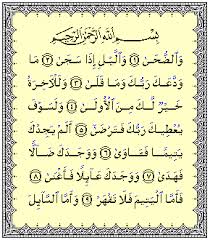 بِسْمِ ٱللَّهِ ٱلرَّحْمَٰنِ ٱلرَّحِيمِ
وَٱلضُّحَىٰ ۝١ وَٱلَّيْلِ إِذَا سَجَىٰ ۝٢ مَا
وَدَّعَكَ رَبُّكَ وَمَا قَلَىٰ ۝٣ وَلَلْأَخِرَةُ
خَيْرٌ لَّكَ مِنَ ٱلْأُولَىٰ ۝٤ وَلَسَوْفَ
يُعْطِيكَ رَبُّكَ فَتَرْضَىٰٓ ۝٥ أَلَمْ يَجِدْكَ
يَتِيمًا فَـَٔاوَىٰ ۝٦ وَوَجَدَكَ ضَآلًّا
فَهَدَىٰ ۝٧ وَوَجَدَكَ عَآئِلًا فَأَغْنَىٰ ۝٨
فَأَمَّا ٱلْيَتِيمَ فَلَا تَقْهَرْ ۝٩ وَأَمَّا ٱلسَّآئِلَ